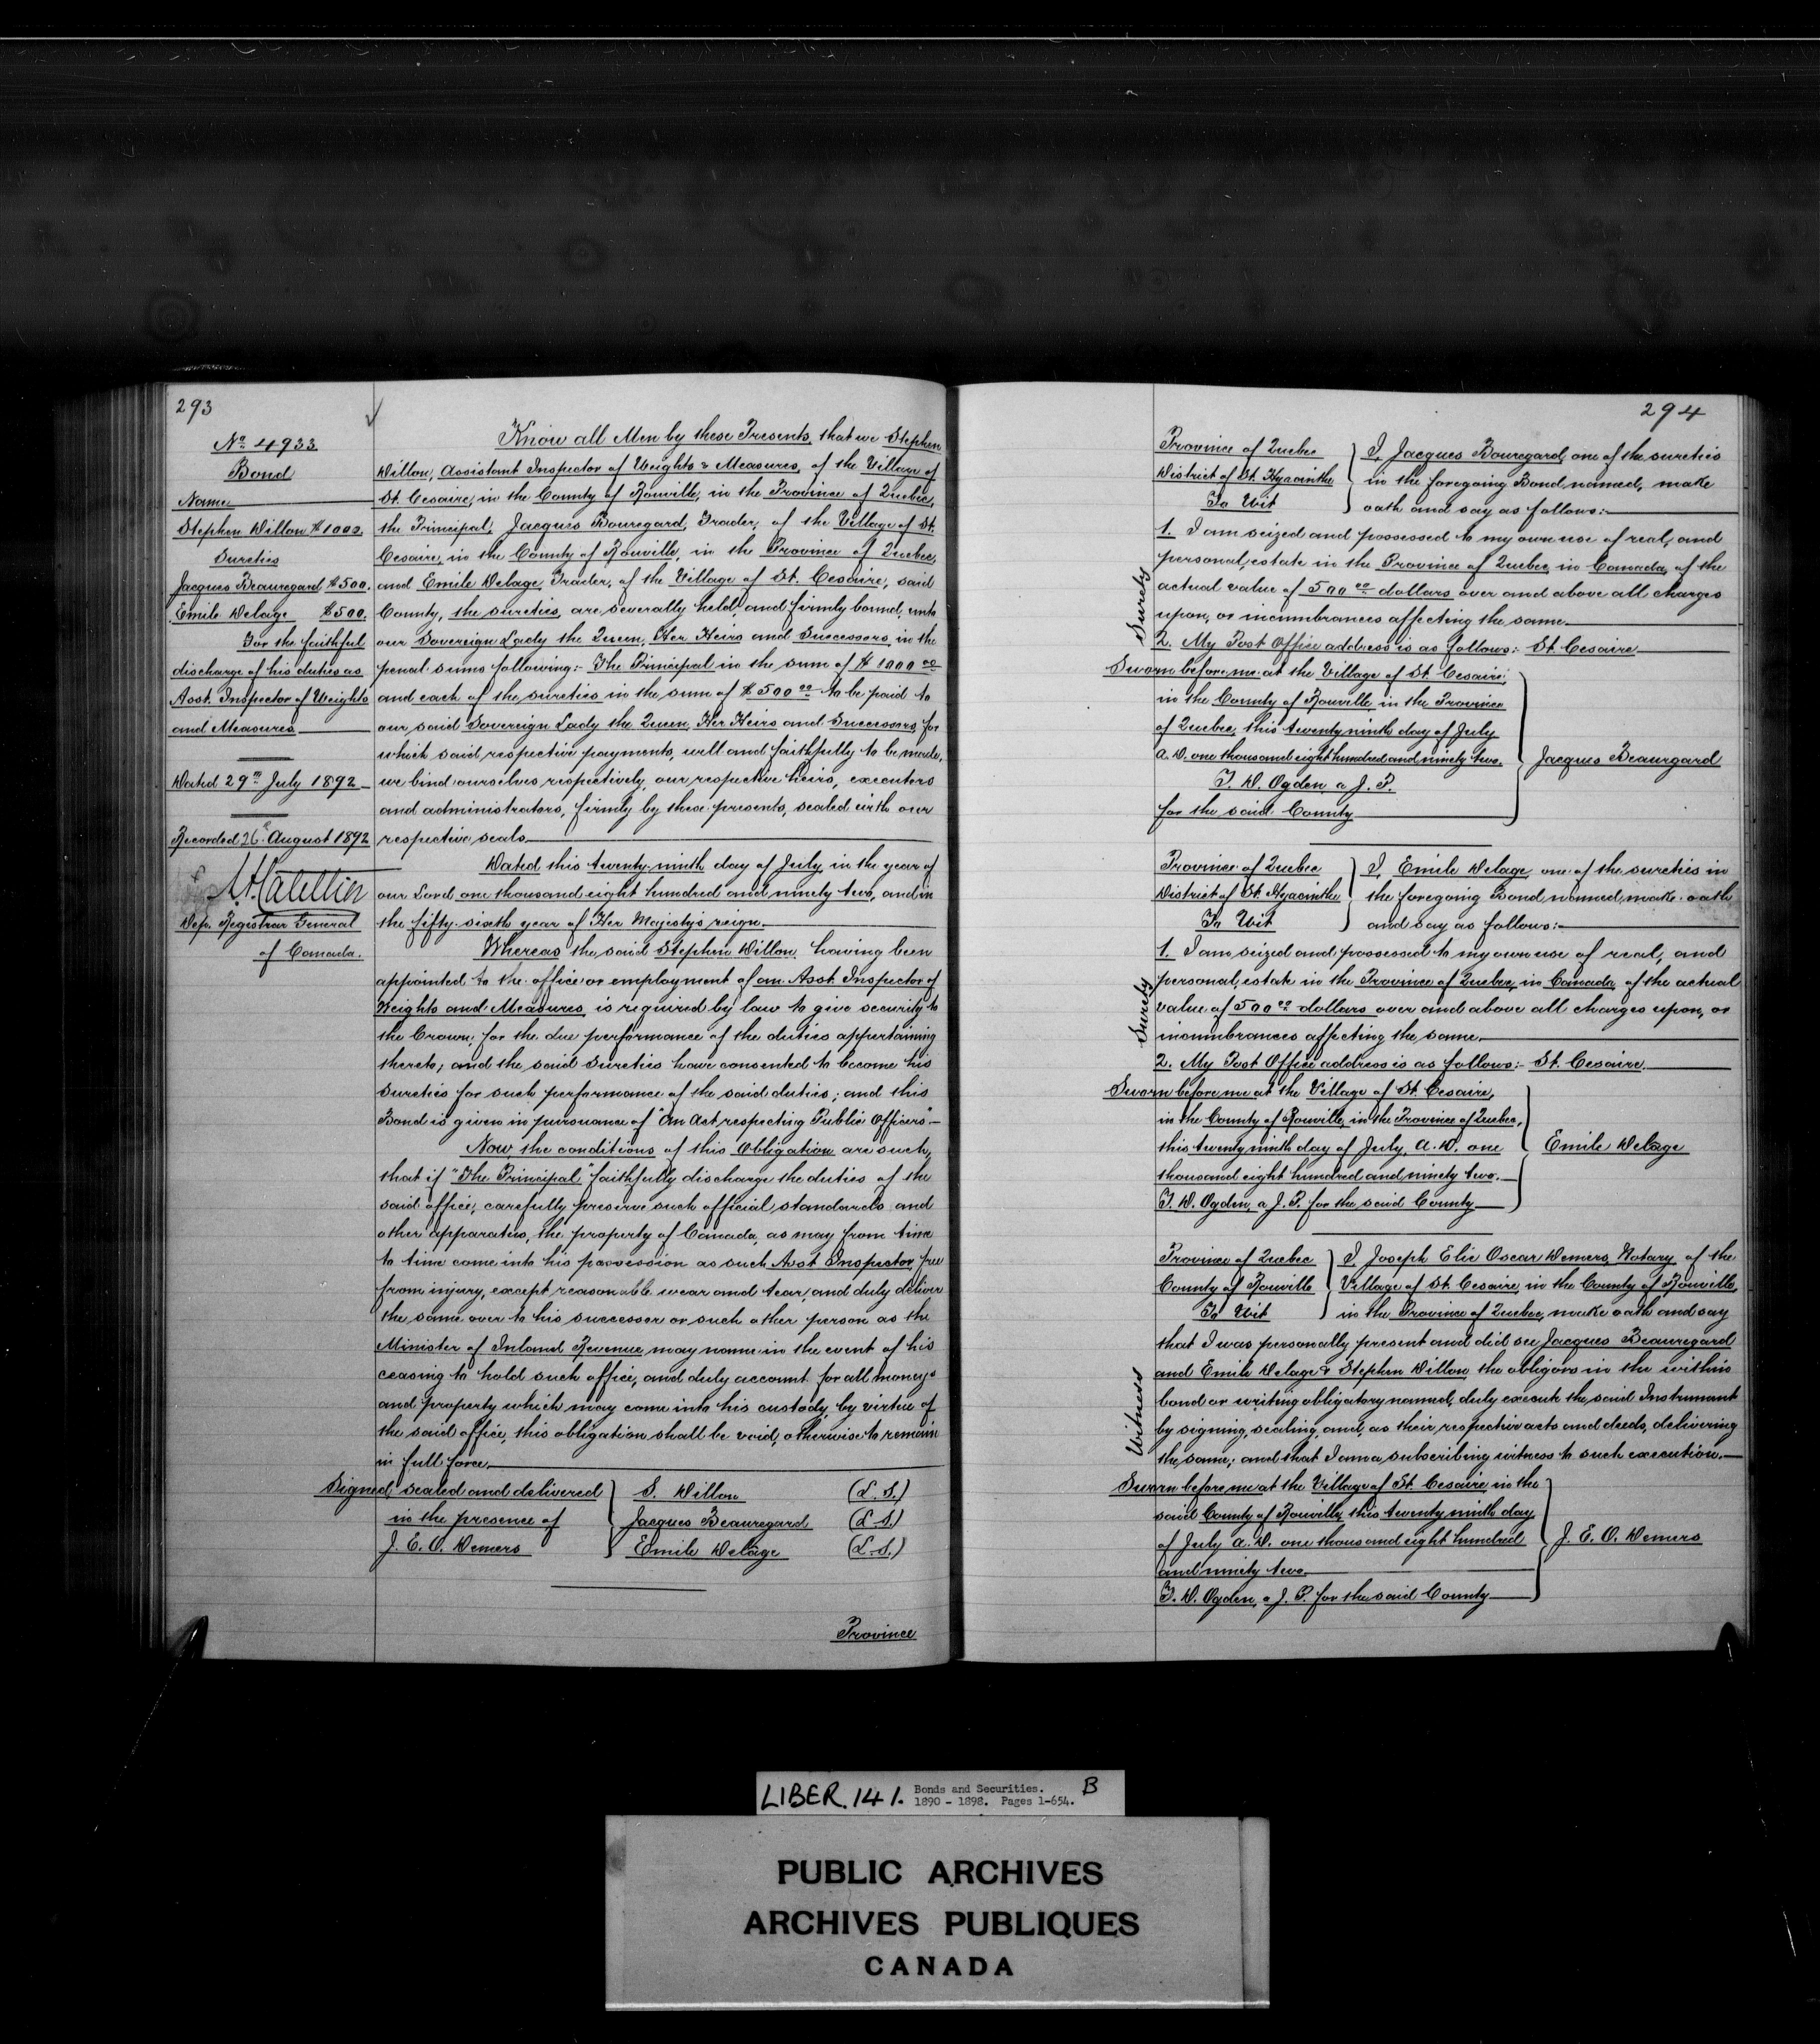 293
No 4933
Bond
Name
Stephen Dillon $1000.
Sureties
Jacques Beauregard $500.
Emile Delage $500.
For the faithful
discharge of his duties as
Asst. Inspector of Weights
and Measures
Dated 29th July 1892
Recorded 26 August 1892
Dep. Registrar General
of Canada.
Know all Men by these Presents, that we Stephen
Dillon, Assistant Inspector of Weights & Measures, of the Village of
St. Cesaire, in the County of Rouville, in the Province of Quebec,
the Principal, Jacques Bouregard, Trader, of the Village of St.
Cesaire, in the County of Rouville, in the Province of Quebec,
and Emile Delage, Trader, of the Village of St. Cesaire, said
County, the sureties, are severally held and firmly bound, unto
our Sovereign Lady the Queen, Her Heirs and Successors, in the
penal sums following:- The Principal in the sum of $1000 00
and each of the sureties in the sum of $500 00 to be paid to
our said Sovereign Lady the Queen, Her Heirs and Successors, for
which said respective payments, well and faithfully to be made,
we bind ourselves respectively, our respective heirs, executors
and administrators, firmly by these presents, sealed with our
respective seals.
Dated this twenty-ninth day of July, in the year of
our Lord one thousand eight hundred and ninety two, and in
the fifty-sixth year of Her Majesty's reign.
Whereas the said Stephen Dillon, having been
appointed to the office or employment of an Asst. Inspector of
Weights and Measures, is required by law to give security to
the Crown, for the due performance of the duties appertaining
thereto; and the said sureties have consented to become his
sureties for such performance of the said duties; and this
Bond is given in pursuance of "An Act respecting Public Officers".
Now, the conditions of this Obligation are such,
that if "The Principal" faithfully discharge the duties of the
said office, carefully preserve such official standards and
other apparatus, the property of Canada, as may from time
to time come into his possession as such Asst. Inspector, free
from injury, except reasonable wear and tear, and duly deliver
the same over to his successor or such other person as the
Minister of Inland Revenue, may name in the event of his
ceasing to hold such office, and duly account for all moneys
and property which may come into his custody, by virtue of
the said office, this obligation shall be void, otherwise to remain
in full force.
Signed, sealed and delivered
in the presence of
J. E. O. Demers
S. Dillon (L.S.)
Jacques Beauregard (L.S.)
Emile Delâge (L.S.)
Province
294
Province of Quebec
District of St. Hyacinthe
To Wit
I, Jacques Bouregard, one of the sureties
in the foregoing Bond named, make
oath and say as follows:-
Surety
1. I am seized and possessed to my own use of real, and
personal, estate in the Province of Quebec, in Canada, of the
actual value of 500 00 dollars over and above all charges
upon, or incumbrances affecting the same.
2. My Post Office address is as follows:- St. Cesaire.
Sworn before me at the Village of St. Cesaire,
in the County of Rouville, in the Province
of Quebec, this twenty ninth day of July
A.D. one thousand eight hundred and ninety two.
F. D. Ogden a J. P.
for the said County
Jacques Beauregard
Province of Quebec
District of St. Hyacinthe
To Wit
I, Emile Delage, one of the sureties in
the foregoing Bond, named, make oath
and say as follows:-
Surety
1. I am seized and possessed to my own use of real, and
personal, estate in the Province of Quebec, in Canada, of the actual
value of 500 00 dollars over and above all charges upon, or
incumbrances affecting the same.
2. My Post Office address is as follows:- St. Cesaire.
Sworn before me at the Village of St. Cesaire,
in the County of Rouville, in the Province of Quebec,
this twenty ninth day of July, A.D. one
thousand eight hundred and ninety two.
F. D. Ogden, a J. P. for the said County
Emile Delage
Province of Quebec
County of Rouville
To Wit
I, Joseph Elie Oscar Demers, Notary, of the
Village of St. Cesaire, in the County of Rouville,
in the Province of Quebec, make oath and say
Witness
that I was personally present and did see Jacques Beauregard
and Emile Delage & Stephen Dillon, the obligors in the within
bond or writing obligatory named, duly execute the said Instrument
by signing, sealing, and, as their respective acts and deeds, delivering
the same; and that I am a subscribing witness to such execution.
Sworn before me at the Village of St. Cesaire, in the
said County of Rouville, this twenty ninth day
of July A.D. one thousand eight hundred
and ninety two.
F. D. Ogden, a J. P. for the said County
J. E. O. Demers
LIBER. 141. Bonds and Securities. B
1890 - 1898. Pages 1-654.
PUBLIC ARCHIVES
ARCHIVES PUBLIQUES
CANADA